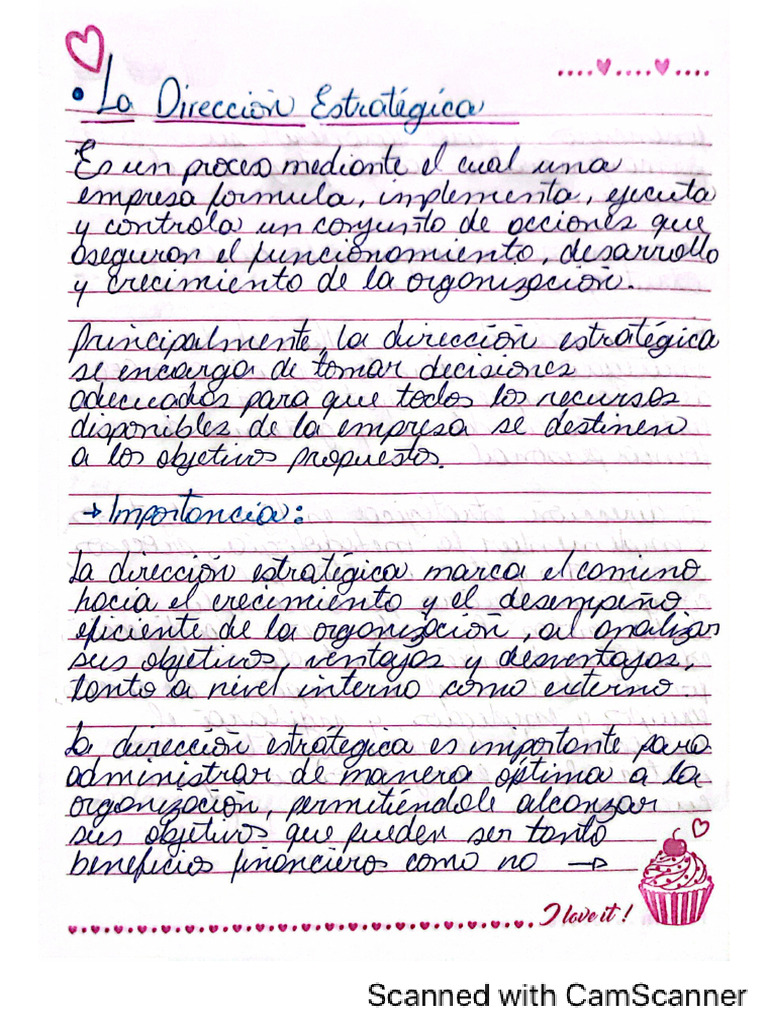 • La Dirección Estratégica
Es un proceso mediante el cual una
empresa formula, implementa, ejecuta
y controla un conjunto de acciones que
aseguran el funcionamiento, desarrollo
y crecimiento de la organización.
Principalmente, la dirección estratégica
se encarga de tomar decisiones
adecuadas para que todos los recursos
disponibles de la empresa se destinen
a los objetivos propuestos.
→ Importancia:
La dirección estratégica marca el camino
hacia el crecimiento y el desempeño
eficiente de la organización, al analizar
sus objetivos, ventajas y desventajas,
tanto a nivel interno como externo.
La dirección estrátegica es importante para
administrar de manera óptima a la
organización, permitiéndole alcanzar
sus objetivos que pueden ser tanto
beneficios financieros como no →
I love it!
Scanned with CamScanner